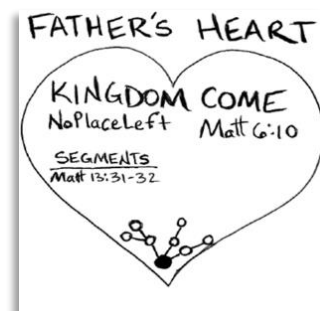 FATHER'S HEART
KINGDOM COME
NoPlaceLeft Matt 6:10
SEGMENTS
Matt 13:31-32